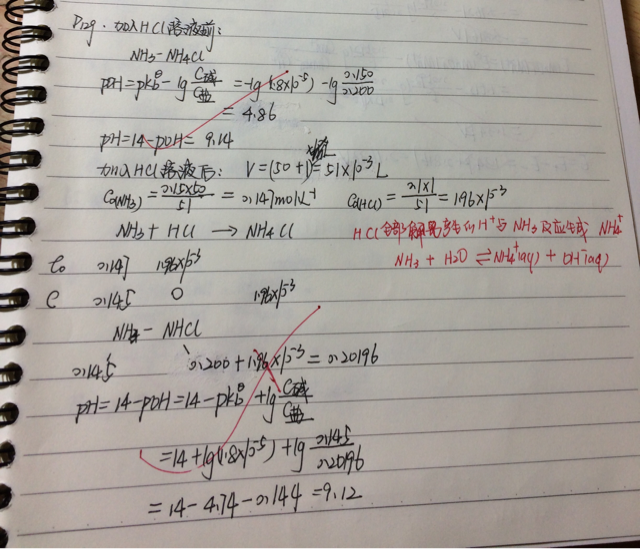 P129. 加入HCl溶液前:
NH3-NH4Cl
pH=pKbθ-lg C碱/C盐=-lg(1.8×10^-5)-lg 0.150/0.200
=4.86
pH=14-pOH=9.14
加入HCl溶液后: V=(50+1)=51×10^-3L
C0(NH3)=0.15×50/51=0.147mol·L^-1 C0(HCl)=0.1×1/51=1.96×10^-3
NH3+HCl→NH4Cl
HCl全部解离产生的H+与NH3反应生成NH4+
NH3+H2O⇌NH4+(aq)+OH-(aq)
C0 0.147 1.96×10^-3
C 0.145 0 1.96×10^-3
NH3-NHCl
0.145 0.200+1.96×10^-3=0.20196
pH=14-pOH=14-pKbθ+lg C碱/C盐
=14+lg(1.8×10^-5)+lg 0.145/0.20196
=14-4.74-0.144=9.12